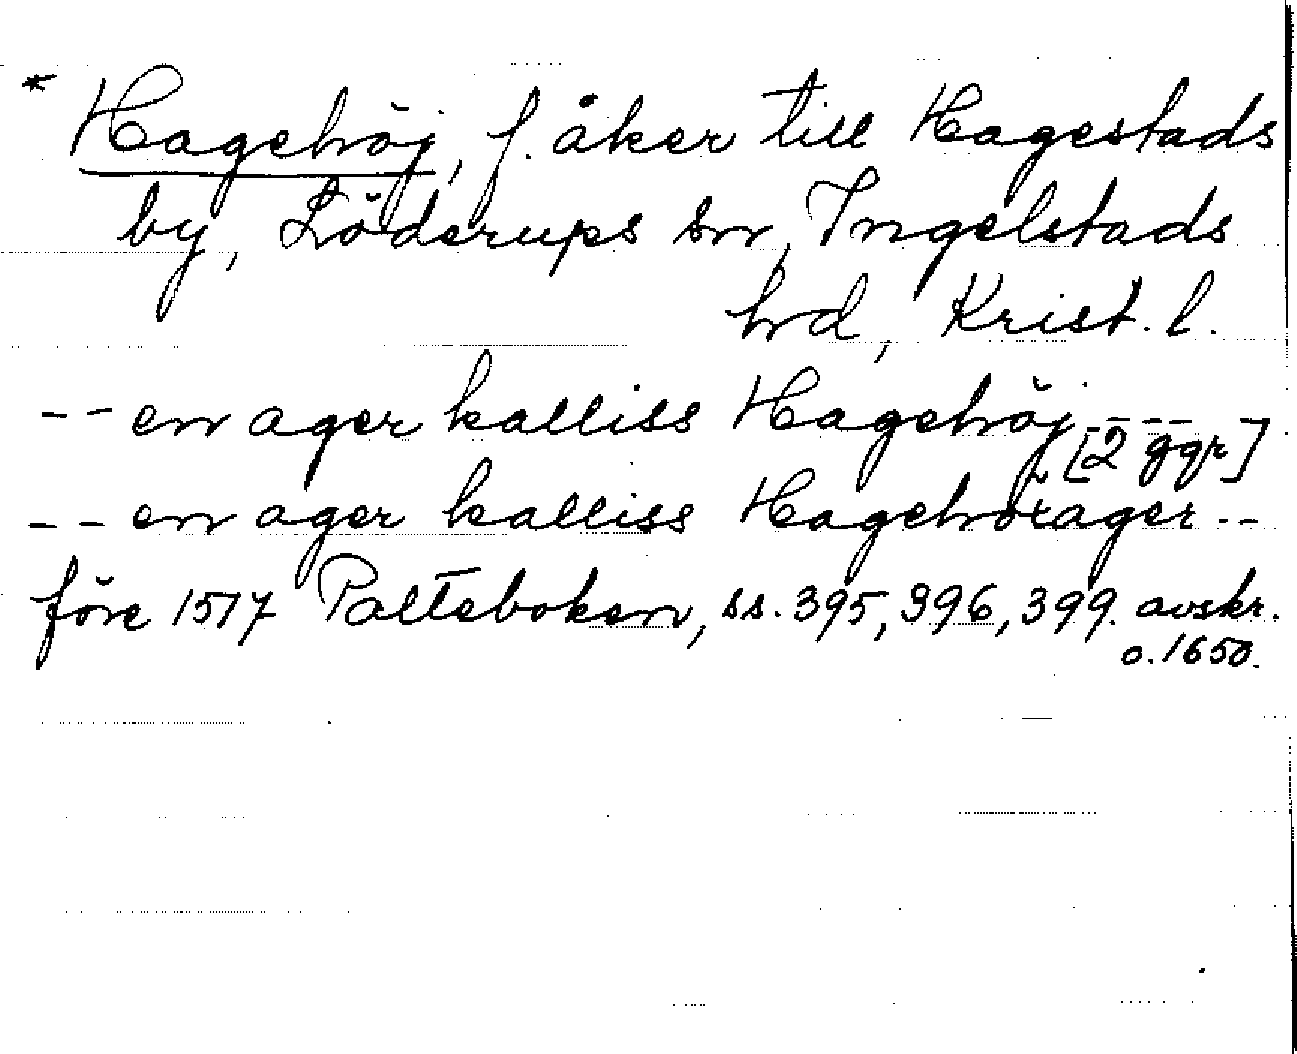 * Hagehöj, f. åker till Hagestads
by, Löderups sn, Ingelstads
hd, Krist. l.
-- en ager kalliss Hagehöj ---
[2 ggr]
-- en ager kalliss Hagehørager --
före 1517 Palteboken, ss. 395, 396, 399. avskr.
o. 1650.